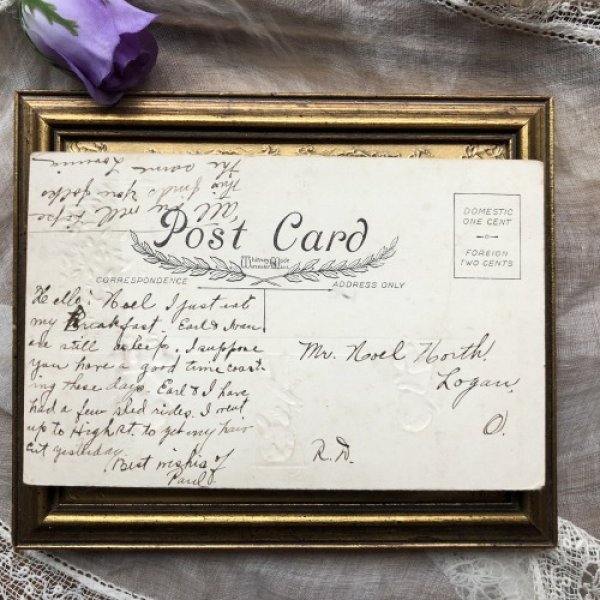 Post Card
Whitney Made
Worcester, Mass.
CORRESPONDENCE
ADDRESS ONLY
DOMESTIC
ONE CENT
FOREIGN
TWO CENTS
Hello! Noel I just eat
my Breakfast. Earl &
are still asleep. I suppose
you have a good time coast-
ing these days. Earl & I have
had a few sled rides. I went
up to High St. to get my hair
cut yesterday.
Best wishes of
Paul
All my well I hope
This finds you folks
the same
Mr. Noel North.
Logan,
O.
R.D.